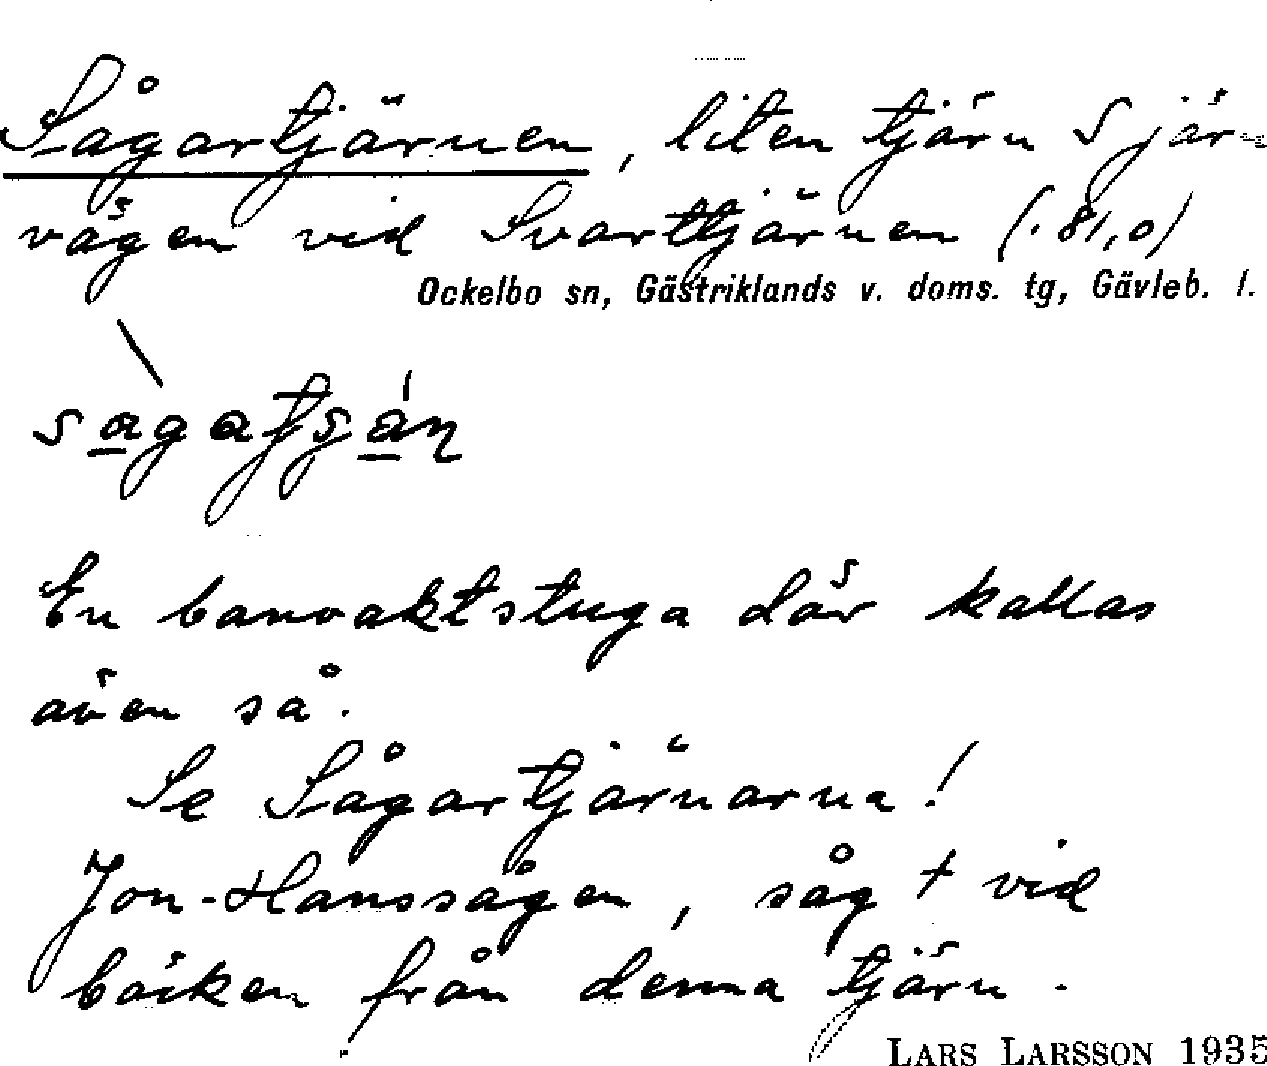 Sågartjärnen, liten tjärn S jär-
vägen vid Svarttjärnen (.81,0)
Ockelbo sn, Gästriklands v. doms. tg, Gävleb. l.
En banvaktstuga där kallas
även så.
Se Sågartjärnarna!
Jon-Hanssågen, såg † vid
bäcken från denna tjärn.
LARS LARSSON 1935